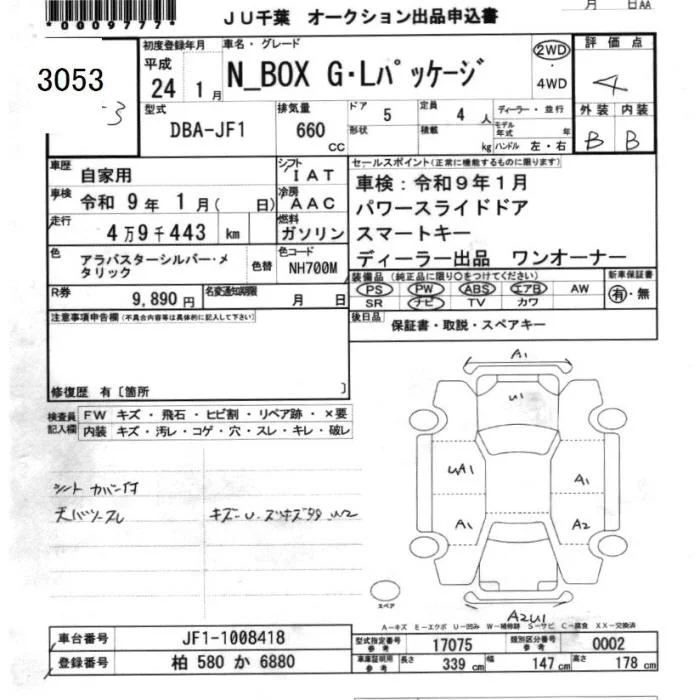 *0009777*
月 日AA
JU千葉 オークション出品申込書
3053
3
初度登録年月
平成
24 1月
車名・グレード
N_BOX G・Lパッケージ
2WD
・
4WD
評価点
4
外装 内装
B B
型式
DBA-JF1
排気量
660
cc
ドア 5
形状
定員 4人
積載 kg
ディーラー・並行
モデル年式 年
ハンドル 左・右
車歴 自家用
シフト IAT
車検 令和9年1月(日)
冷房 AAC
走行 4万9千443 km
燃料 ガソリン
色 アラバスターシルバー・メタリック
色替
色コード NH700M
R券 9,890円
名変通知期限 月 日
セールスポイント(正常に機能するものに限ります)
車検:令和9年1月
パワースライドドア
スマートキー
ディーラー出品 ワンオーナー
装備品(純正品に限り○をつけてください)
PS PW ABS エアB AW
SR ナビ TV カワ
新車保証書
有・無
後日品 保証書・取説・スペアキー
注意事項申告欄(不具合内容等は具体的に記入して下さい)
修復歴 有〔箇所 〕
検査員記入欄
FW キズ・飛石・ヒビ割・リペア跡・×要
内装 キズ・汚レ・コゲ・穴・スレ・キレ・破レ
シートカバー付
天バリスレ
A1
U1
UA1
A1
A1
A2
A2U1
スペア
A-キズ E-エクボ U-凹み W-補修跡 S-サビ C-腐食 XX-交換済
車台番号 JF1-1008418
登録番号 柏 580 か 6880
型式指定番号 参考 17075
類別区分番号 参考 0002
車庫証明用 参考 長さ 339 cm 幅 147 cm 高さ 178 cm